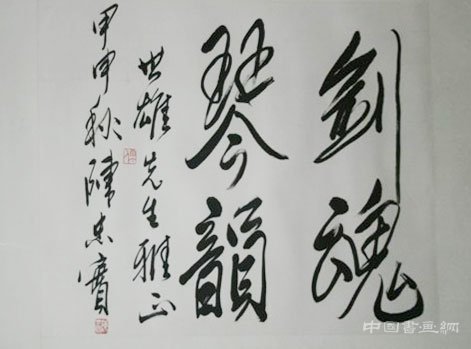 剑魂
琴韻
世雄先生雅正
甲申秋陳忠寶
中国書画網